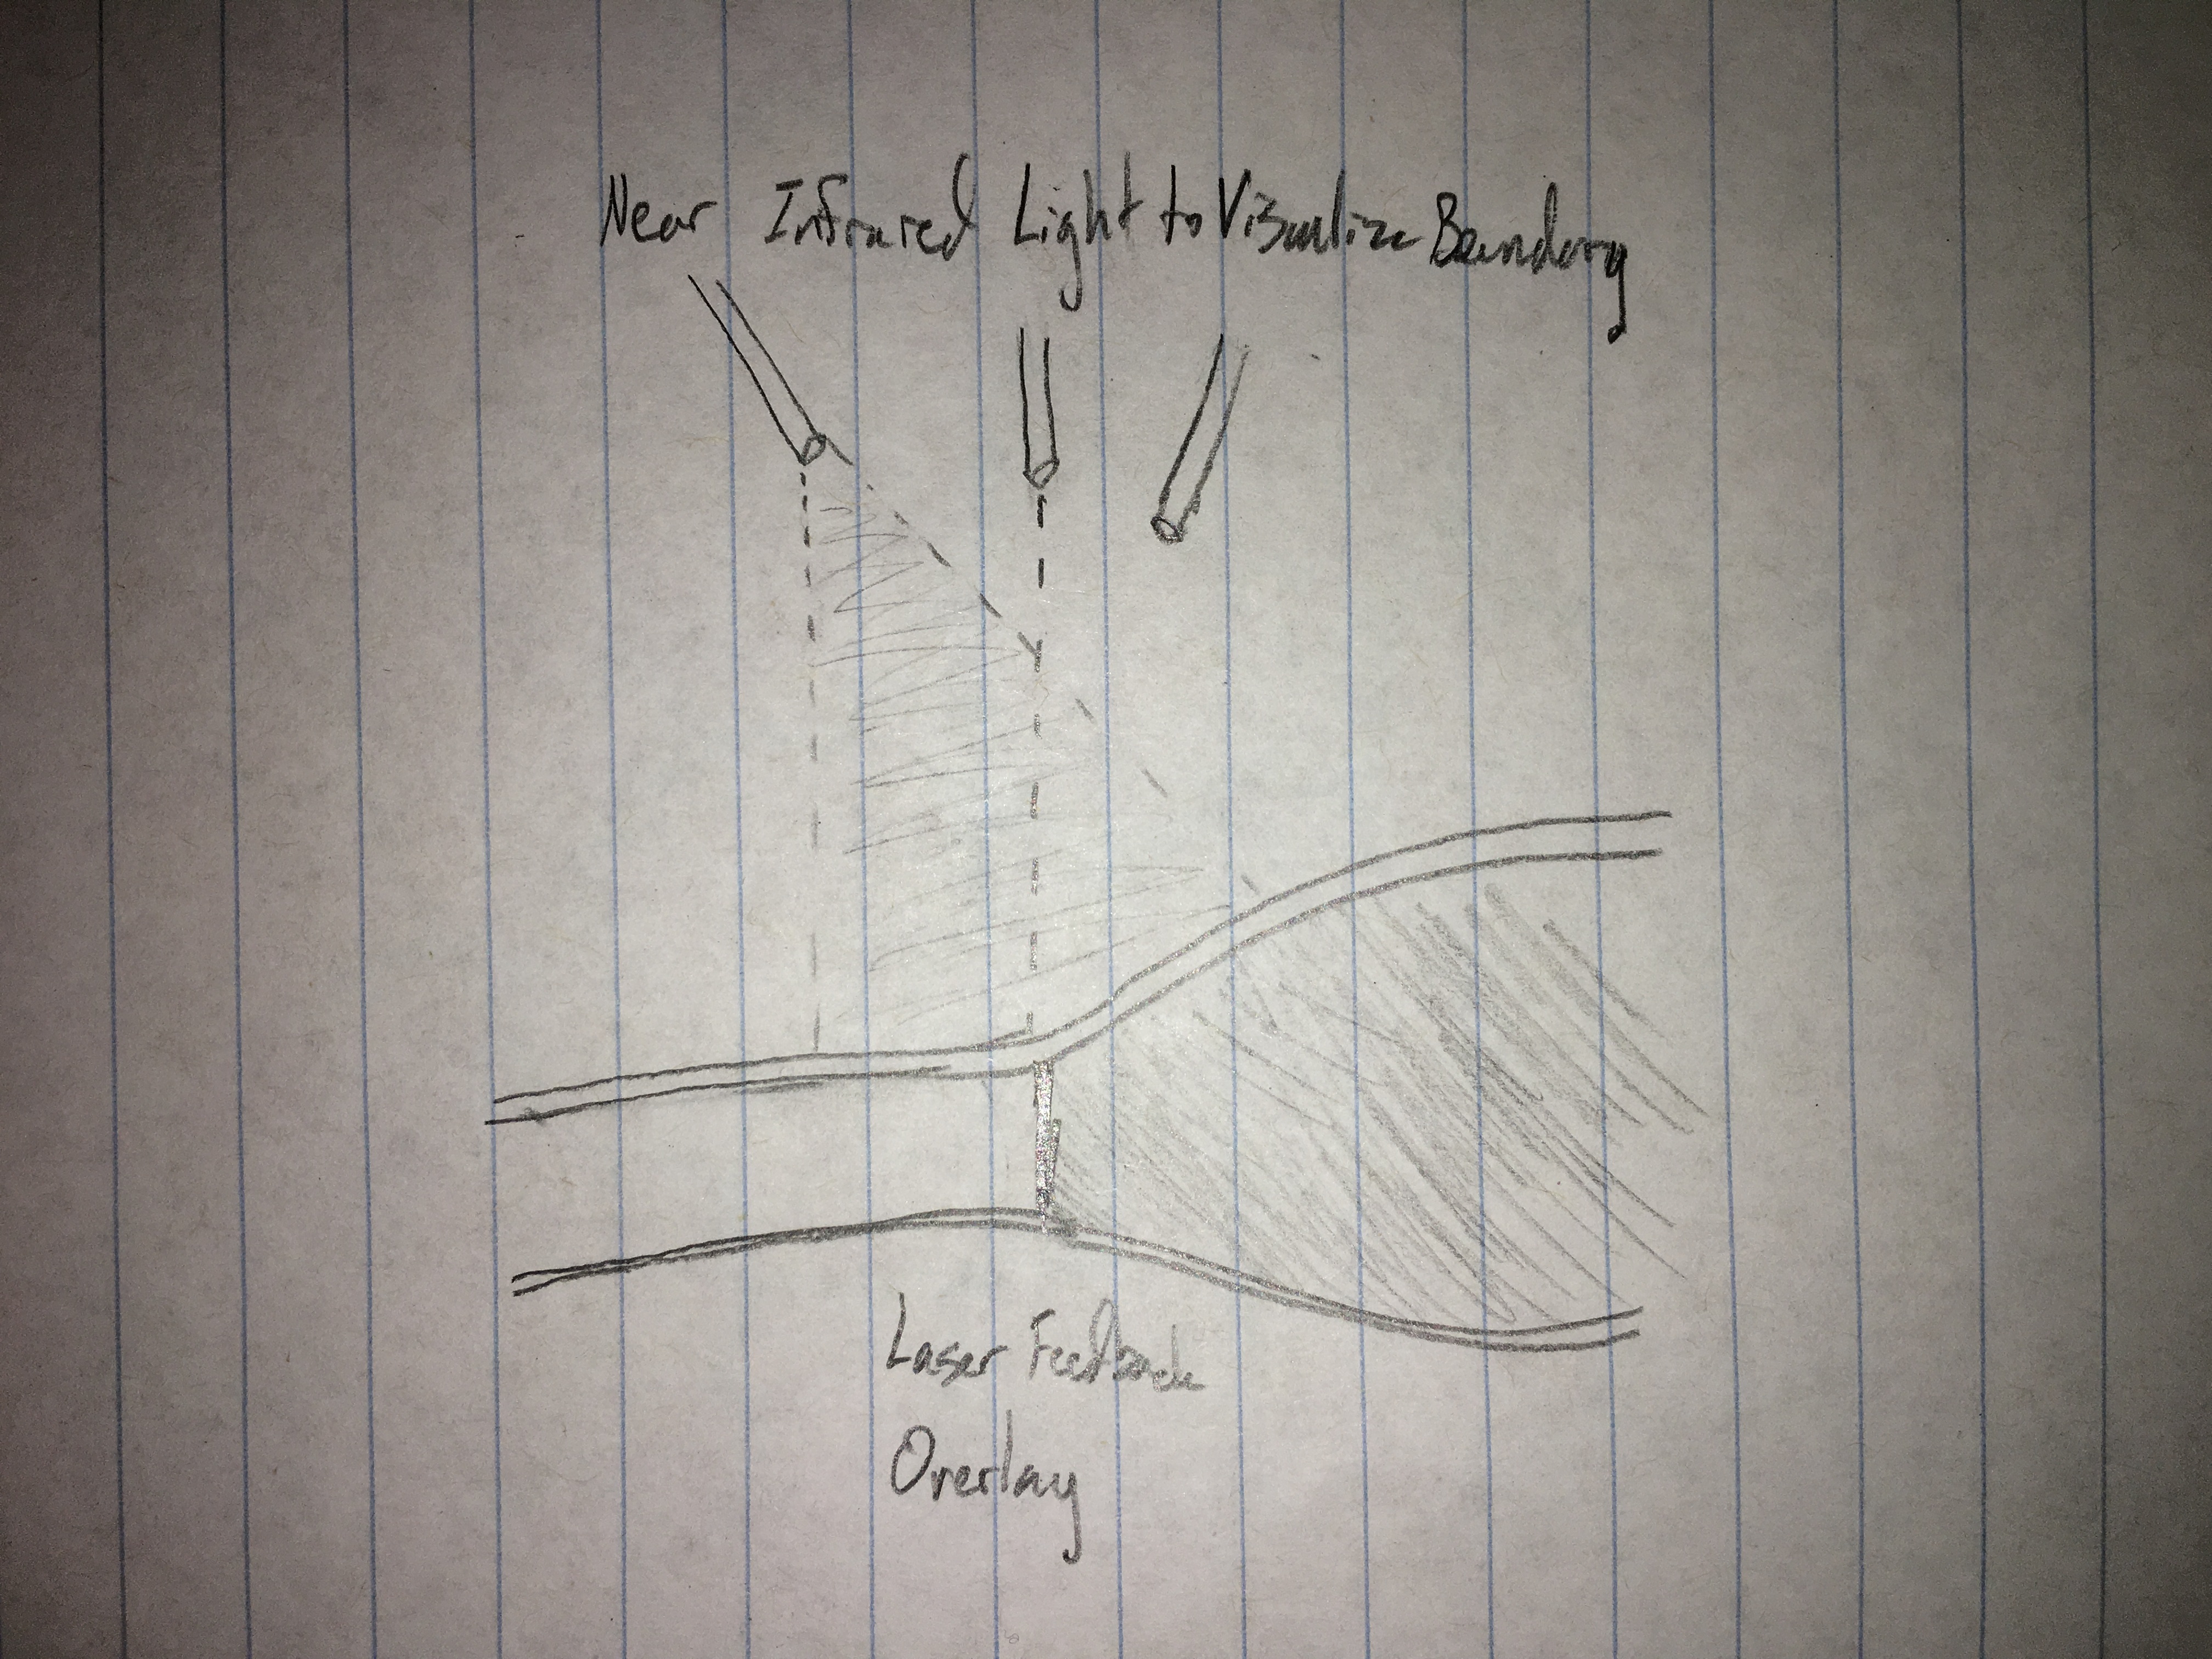 Near Infrared Light to Visualize Boundary
Laser Feedback
Overlay